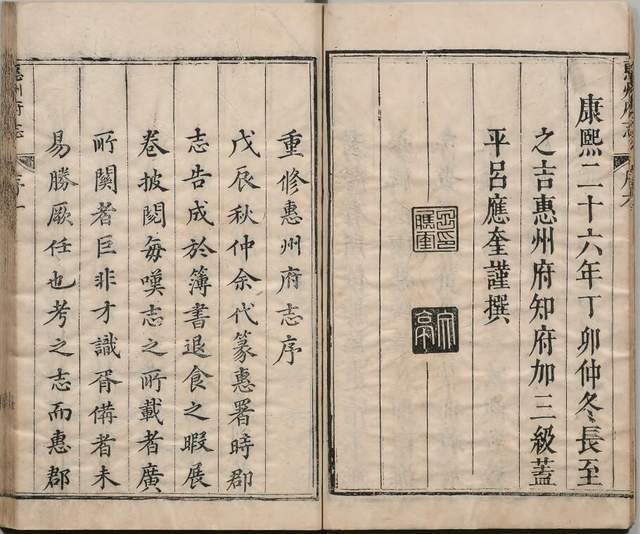 康熙二十六年丁卯仲冬長至
之吉惠州府知府加三級蓋
平呂應奎謹撰
重修惠州府志序
戊辰秋仲余代篆惠署時郡
志告成於簿書退食之暇展
卷披閱每嘆志之所載者廣
所闕者巨非才識胥備者未
易勝厥任也考之志而惠郡
惠州府志
序一